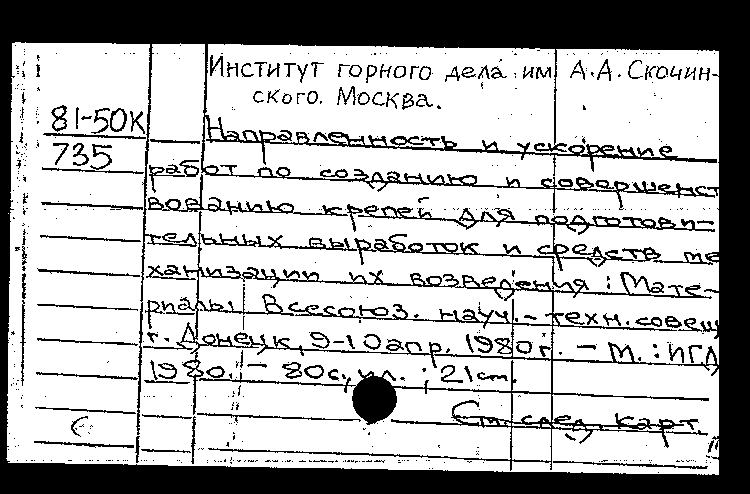 Институт горного дела им А.А. Скочин-
ского. Москва.
81-50К
735
Направленность и ускорение
работ по созданию и совершенст
вованию крепей для подготови-
тельных выработок и средств ме
ханизации их возведения : Мате-
риалы Всесоюз. науч.- техн. совещ
г. Донецк, 9-10 апр. 1980 г. - М. : ИГД
1980. - 80 с., ил. ; 21 см.
См. след. карт.